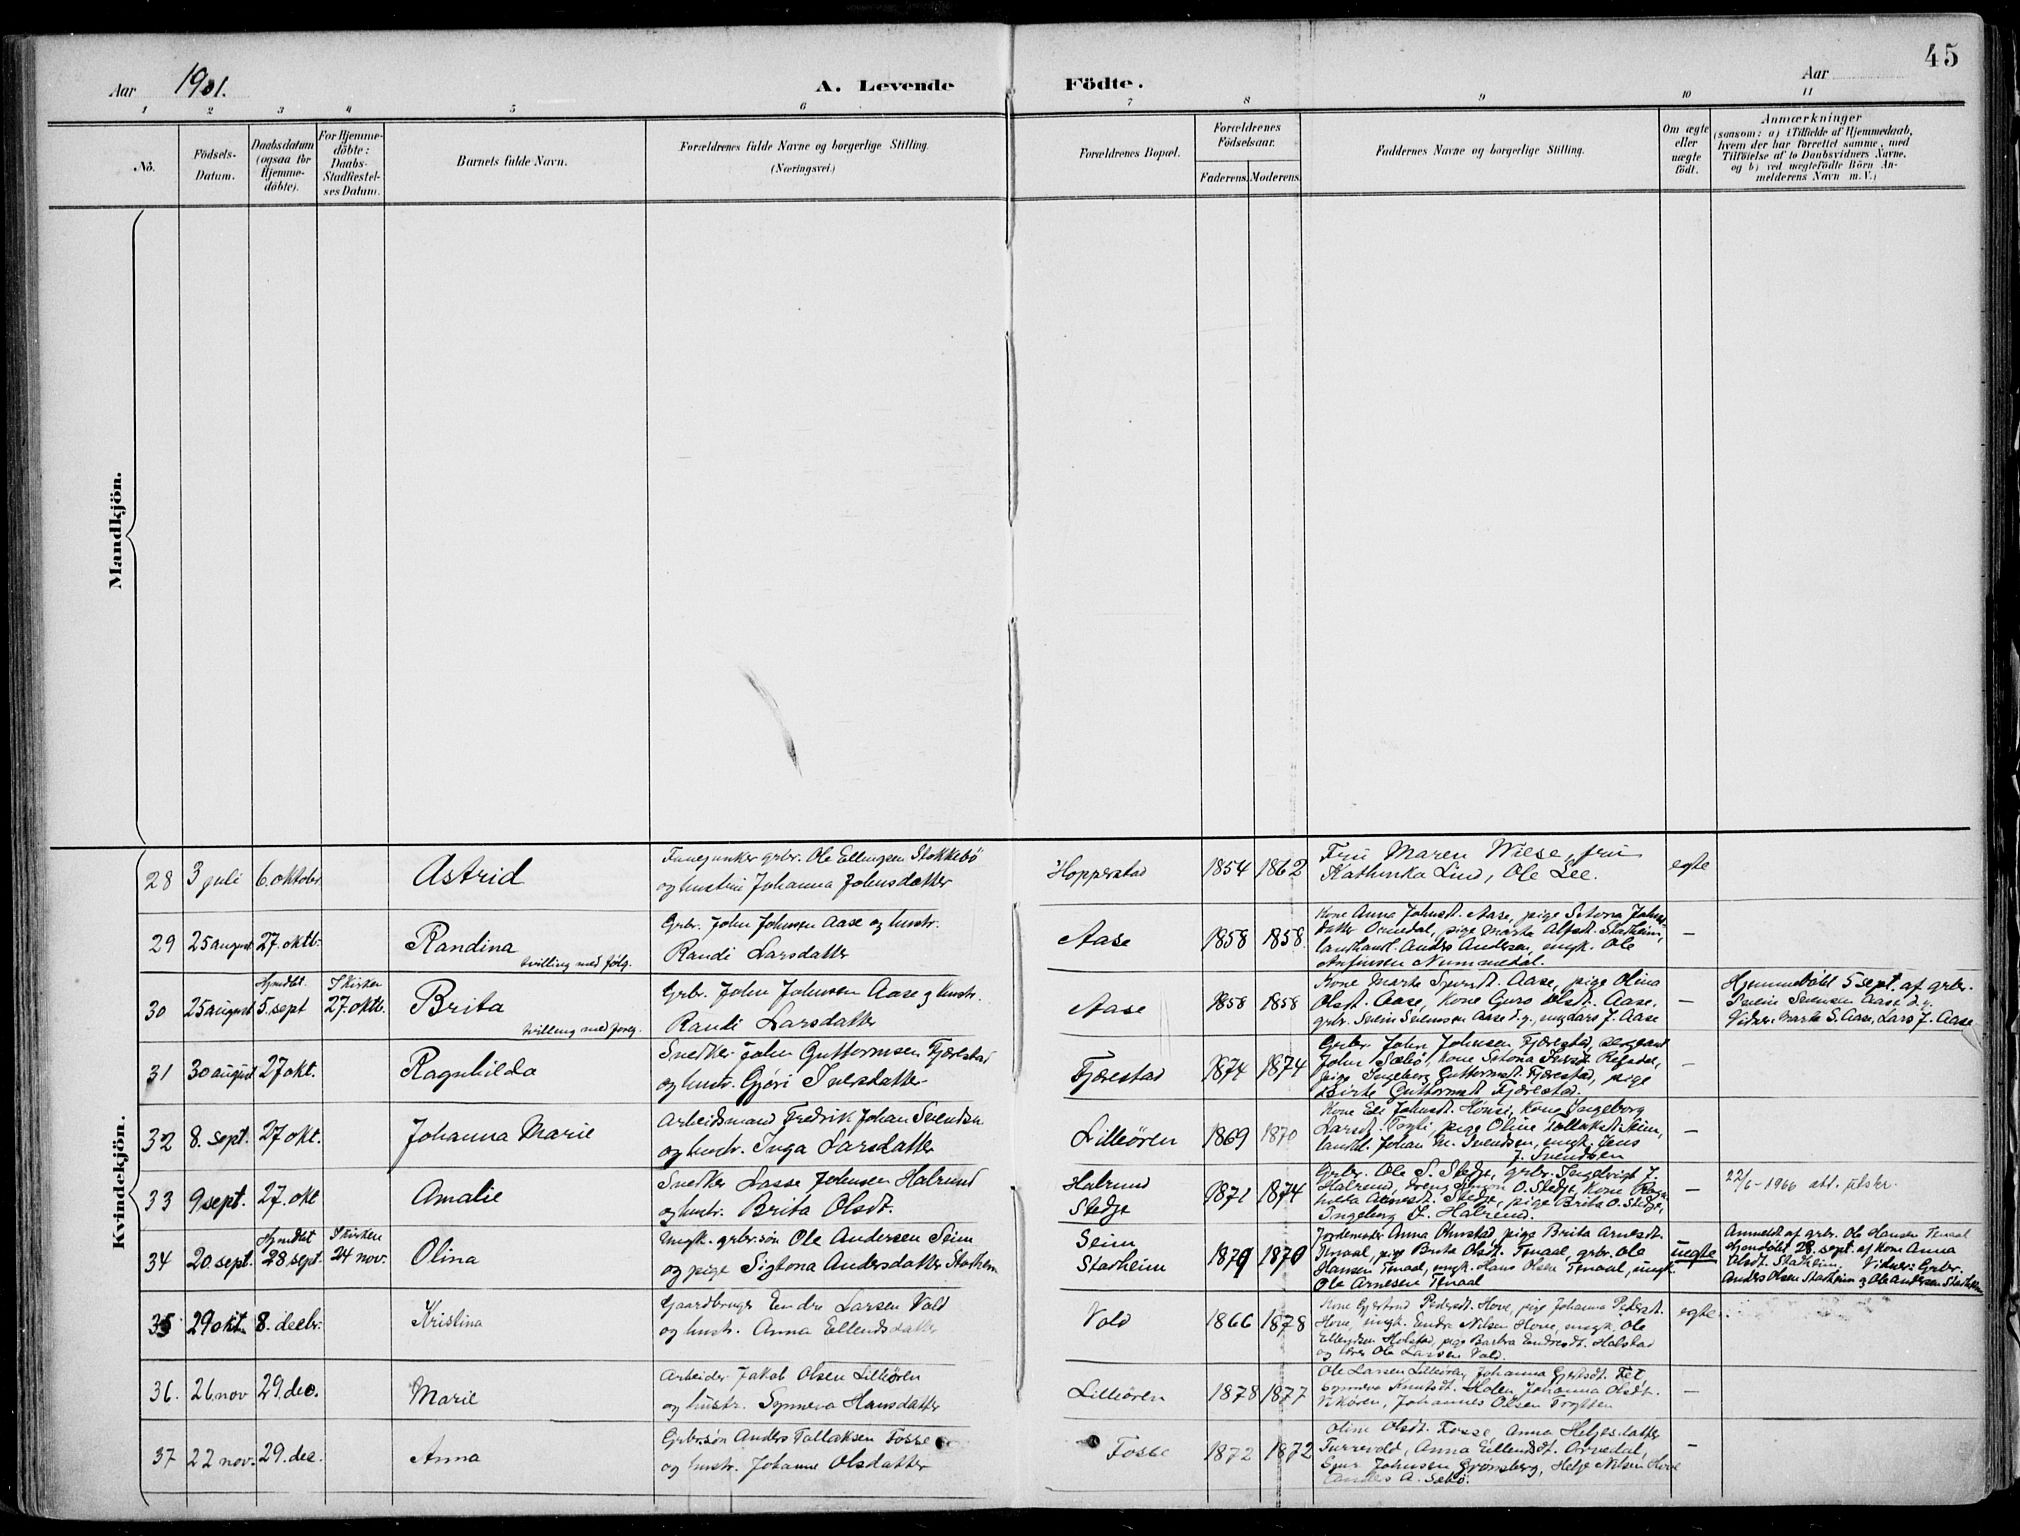 45
Aar 1901.
A. Levende Födte.
Aar
1 2 3 4 5 6 7 8 9 10 11
No.
Födsels-
Datum.
Daabsdatum
(ogsaa for
Hjemme-
döbte).
For Hjemme-
döbte:
Daabs-
Stadfæstel-
ses Datum.
Barnets fulde Navn.
Forældrenes fulde Navne og borgerlige Stilling.
(Næringsvei.)
Forældrenes Bopæl.
Forældrenes
Födselsaar.
Faderens. Moderens.
Faddernes Navne og borgerlige Stilling.
Om ægte
eller
uægte
födt.
Anmærkninger
(saasom: a) i Tilfælde af Hjemmedaab,
hvem der har forrettet samme, med
Tilföielse af to Daabsvidners Navne,
og b) ved uægtefödte Börn An-
melderens Navn m. V.)
Mandkjön.
Kvindekjön.
28 3 juli 6. oktober Astrid
grbr. Ole Ellingsen Stokkebö
og hustru Johanna Johnsdatter
Hopperstad 1854 1862
Fru Maren Wiese, fru
Kathinka Lind, Ole Lee.
egte
29 25 august 27. oktb. Randina
tvilling med følg.
Grbr. John Johnsen Aase og hustr.
Randi Larsdatter
Aase 1858 1858
Kone Anna Johnsdt. Aase, pige
datter pige Marta Stadheim,
landhandl. Anders Andersen, ungk. Ole
Anfinsen Nummedal.
—
30 25 august Hjmdbt. 5. sept I kirken 27. oktb. Brita
tvilling med foreg.
Grbr. John Johnsen Aase og hustr.
Randi Larsdatter
Aase 1858 1858
Kone Marta Aase, pige Olina
Olsdt. Aase, Kone Guro Olsdt. Aase,
grbr. Svein Sveinsen Aase d.y., ung Lars J. Aase
—
Hjemmedöbt 5 sept. af grbr.
Svein Sveinsen Aase d.y.
Vidner: Marta S. Aase, Lars J. Aase
31 30 august 27 okt. Ragnhilda
Snedker John Guttormsen Fjærestad
og hustr. Gjöri Iversdatter
Fjærestad 1874 1874
Grbr. John Johnsen Fjærestad, sergeant
John Sæbö, Kone
pige Ingeborg Guttormsdt. Fjærestad, pige
Guttormsdt. Fjærestad.
—
32 8. sept. 27 okt. Johanna Marie
Arbeidsmand Fredrik Johan Svendsen
og hustr. Inga Larsdatter
Lilleören 1869 1870
Kone Eli Johnsdt. Hönsi, Kone Ingeborg
Larsdt. pige Oline Seim,
landhl. Johan M. Svendsen, ungk. Jens
J. Svendsen
—
33 9 sept. 27. okt Amalie
Snedker Lasse Johnsen Halrund
og hustr. Brita Olsdt.
Halrund
Stedje
1871 1874
Grbr. Ole S. Stedje, grbr. Ingebrigt J.
Halrund, dreng Simon O. Stedje, Kone
Stedje, pige Brita O. Stedje,
Ingeborg J. Halrund.
—
22/6-1966 att. utskr.
34 20. sept. Hjmdbt 28. sept. I kirken 24 nov. Olina
Ungk. grbr.sön Ole Andersen Seim
og pige Sigtona Andersdatter Stadheim
Seim
Stadheim
1879 1870
Jordemoder Anna pige Brita Arnesdt.
Tenaal, pige Brita Olsdt. Tenaal, grbr. Ole
Hansen Tenaal, ungk. Hans Olsen Tenaal, ungk.
Ole Arnesen Tenaal
uegte
Anmeldt af grbr. Ole Hansen Tenaal
Hjemdöbt 28. sept. af Kone Anna
Olsdt. Stadheim. Vidner: Grbr.
Anders Olsen Stadheim og Ole Andersen Stadheim
35 29 okt. 8. decbr. Kristina
Gaardbruger Endre Larsen Vold
og hustr. Anna Ellendsdatter
Vold 1866 1878
Kone Gjertrud Pedersdt. Hove, pige Johanna Pedersdt.
Hove, ungk. Endre Nilsen Hove, ungk. Ole
Ellendsen Holstad, pige Barbra Endresdt. Holstad
og Ole Larsen Vold
egte
36. 26. nov 29. dec. Marie
Arbeider Jakob Olsen Lilleören
og hustr. Synneva Hansdatter
Lilleören 1878 1877
Ole Larsen Lilleören, Johanna Fet,
Synneva Knutsdt. Holen, Johanna Olsdt.
Vikören, Johannes Olsen
—
37 22 nov. 29. dec. Anna
Grbr.sön Anders Tollaksen Fosse
og hustr. Johanne Olsdatter
Fosse 1872 1872
Oline Olsdt. Fosse, Anna Helgesdatter
Turvold, Anna Ellendsdt. Arnedal,
Sjur Johnsen Grönsberg, Helge Nilsen Hove
Anders A. Sæbö.
—